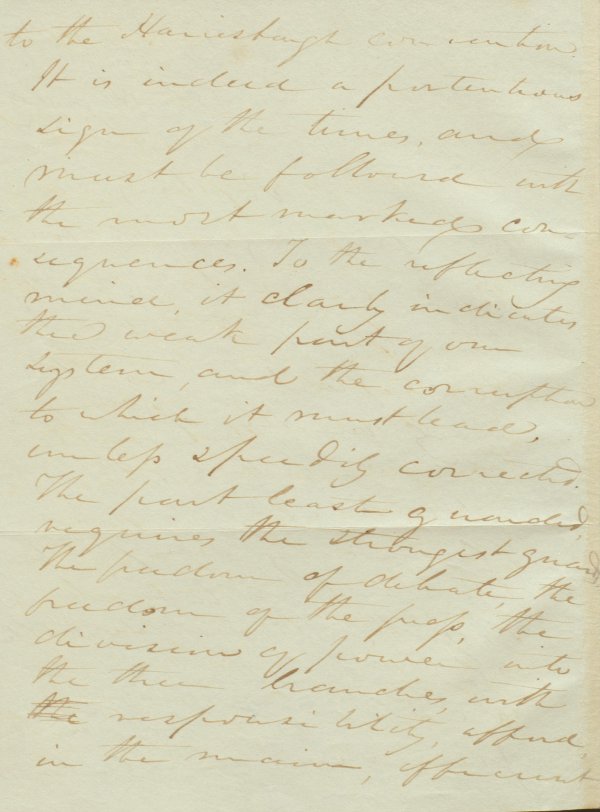 to the Harrisburgh convention.
It is indeed a portentious
sign of the times, and
must be followed with
the most marked con-
sequences. To the reflecting
mind, it clearly indicates
the weak part of our
system, and the corruption
to which it must lead,
unless speedily corrected.
The part least guarded,
requires the strongest guard.
The freedom of debate, the
freedom of the press, the
division of power into
the three branches, with
the responsibility, afford,
in the main, efficient